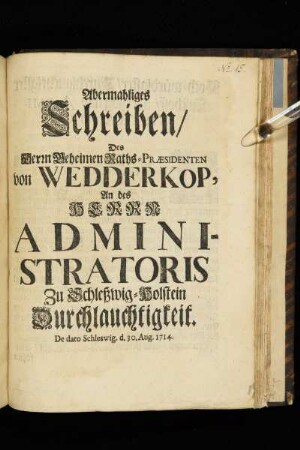 No. 15.
Abermahliges
Schreiben/
Des
Herrn Geheimen Raths-PRÆSIDENTEN
von WEDDERKOP,
An des
HERRN
ADMINI-
STRATORIS
Zu Schleßwig-Holstein
Durchlauchtigkeit.
De dato Schleswig. d. 30. Aug. 1714.